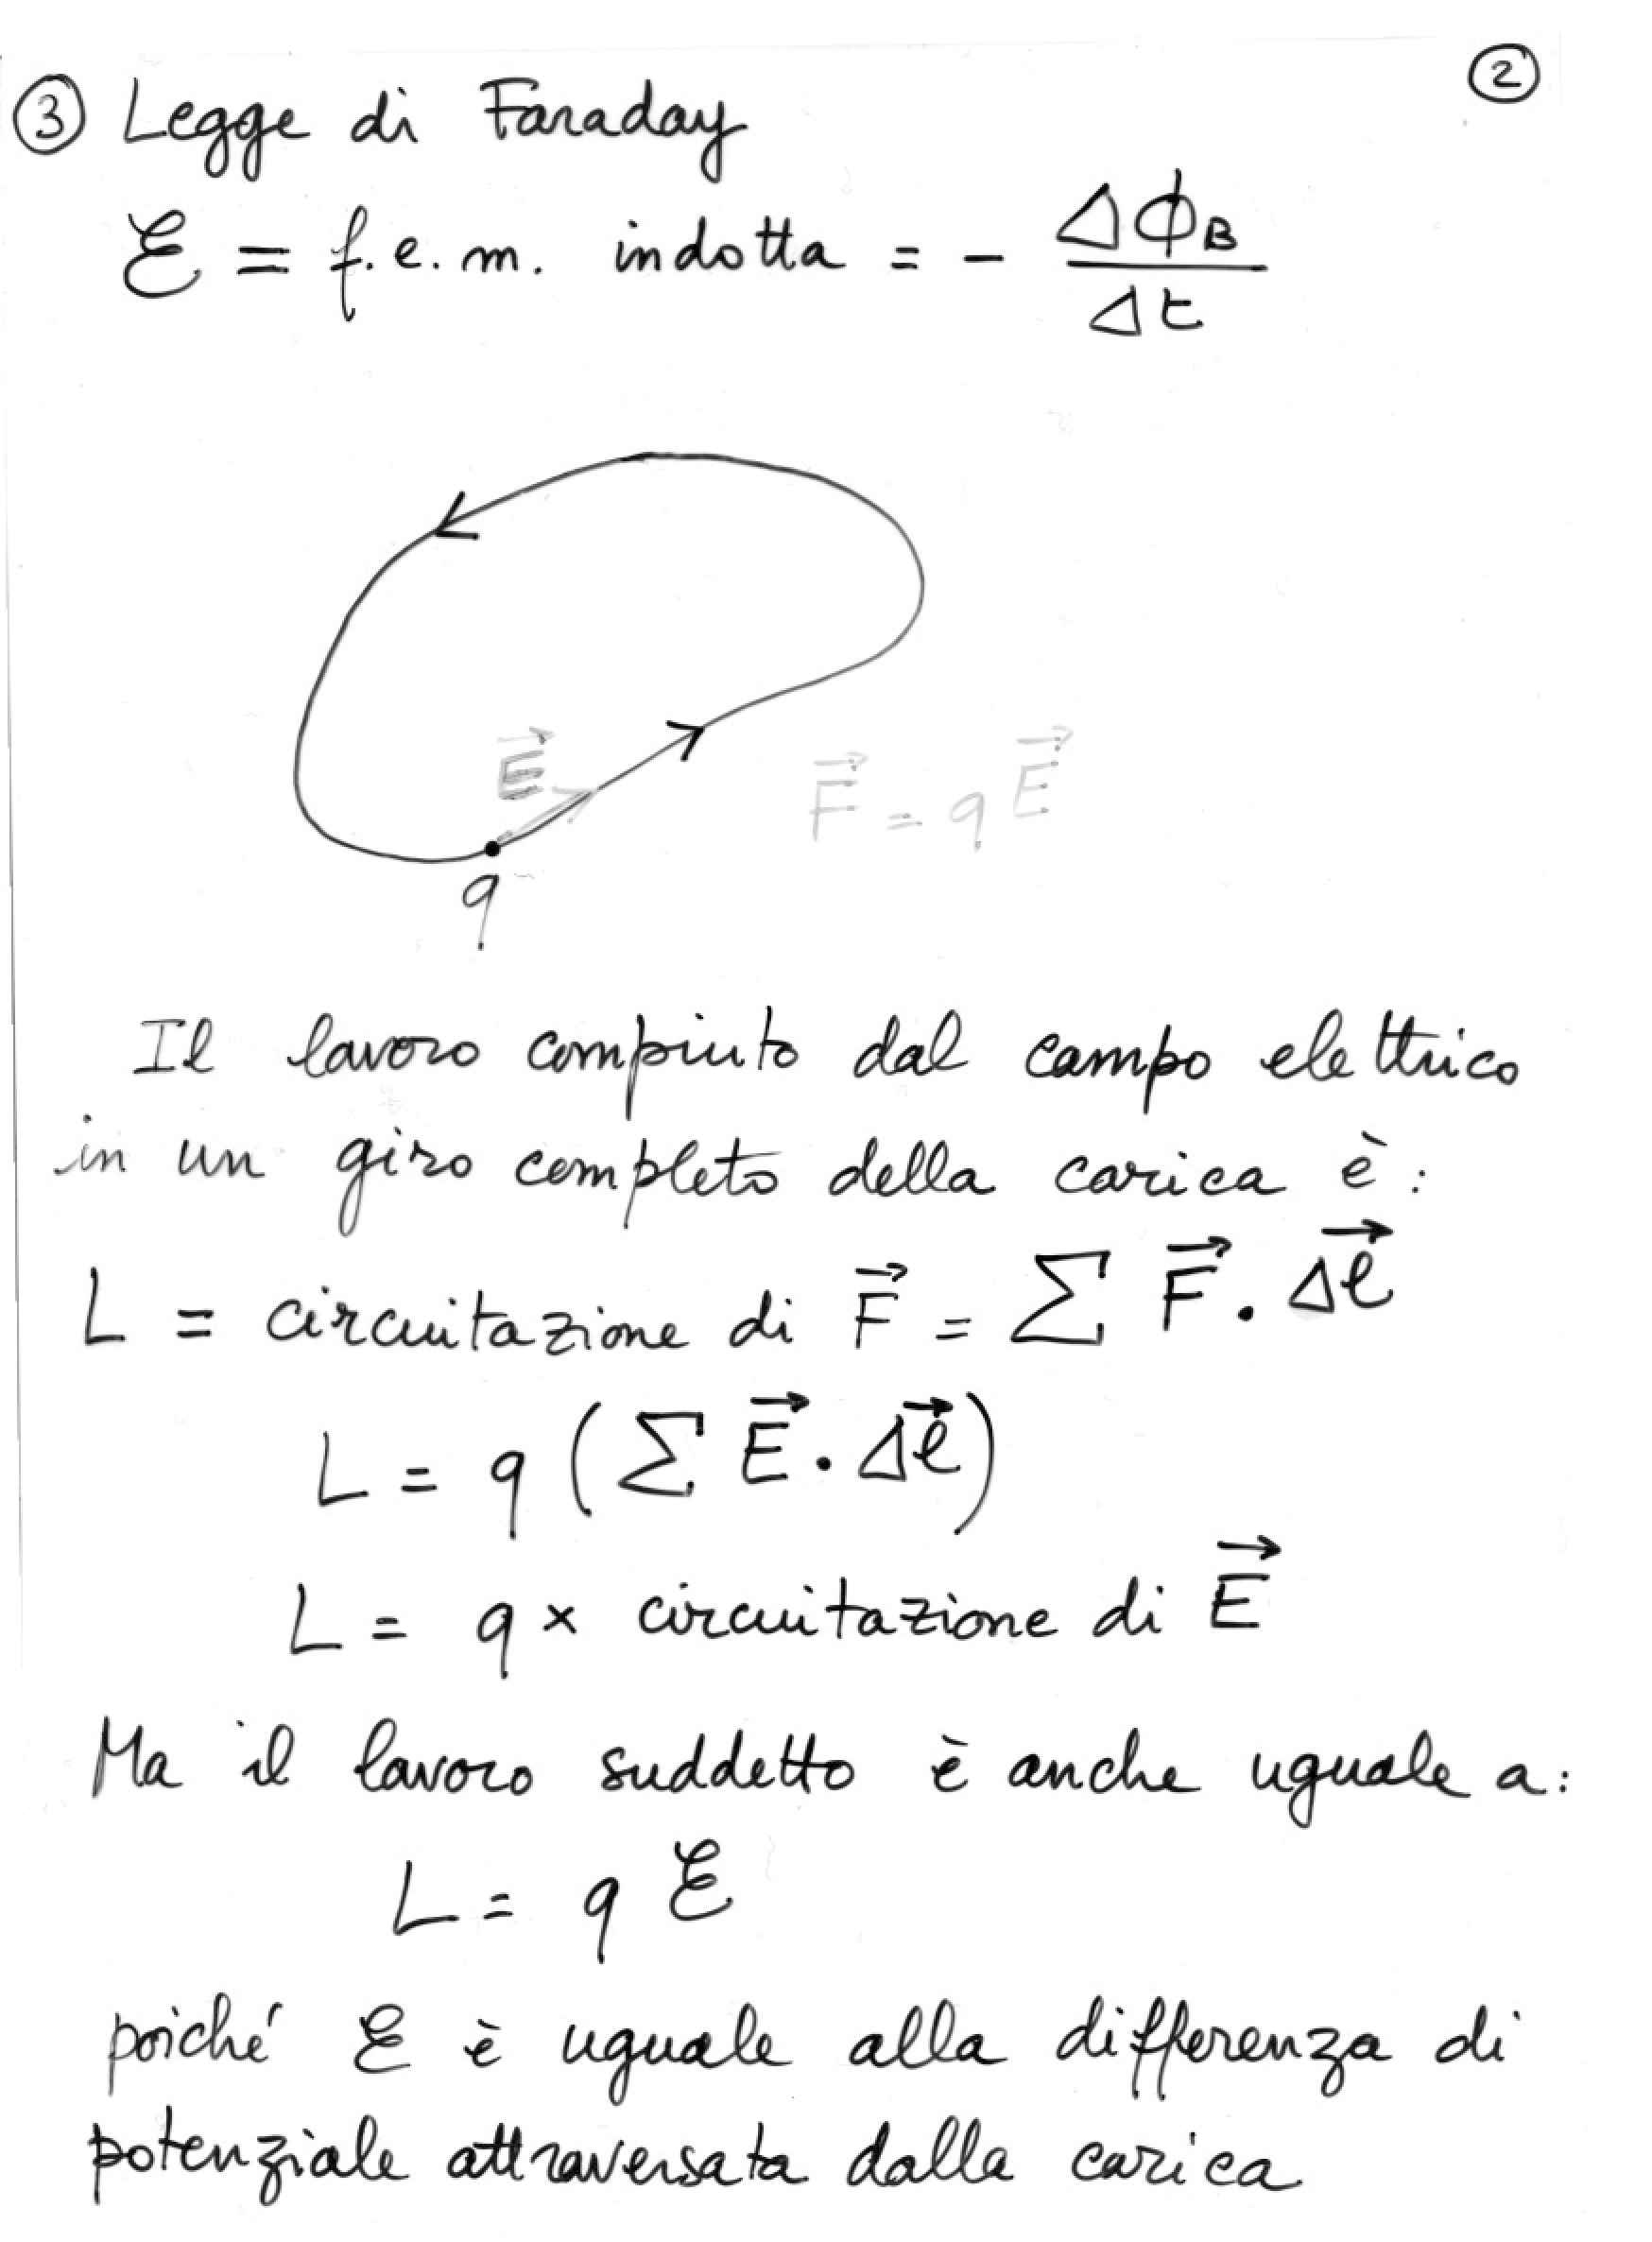 ②
③ Legge di Faraday
ℰ = f.e.m. indotta = - ΔΦ_B / Δt
E⃗
F⃗ = q E⃗
q
Il lavoro compiuto dal campo elettrico
in un giro completo della carica è:
L = circuitazione di F⃗ = Σ F⃗ · Δl⃗
L = q (Σ E⃗ · Δl⃗)
L = q × circuitazione di E⃗
Ma il lavoro suddetto è anche uguale a:
L = q ℰ
poiché ℰ è uguale alla differenza di
potenziale attraversata dalla carica